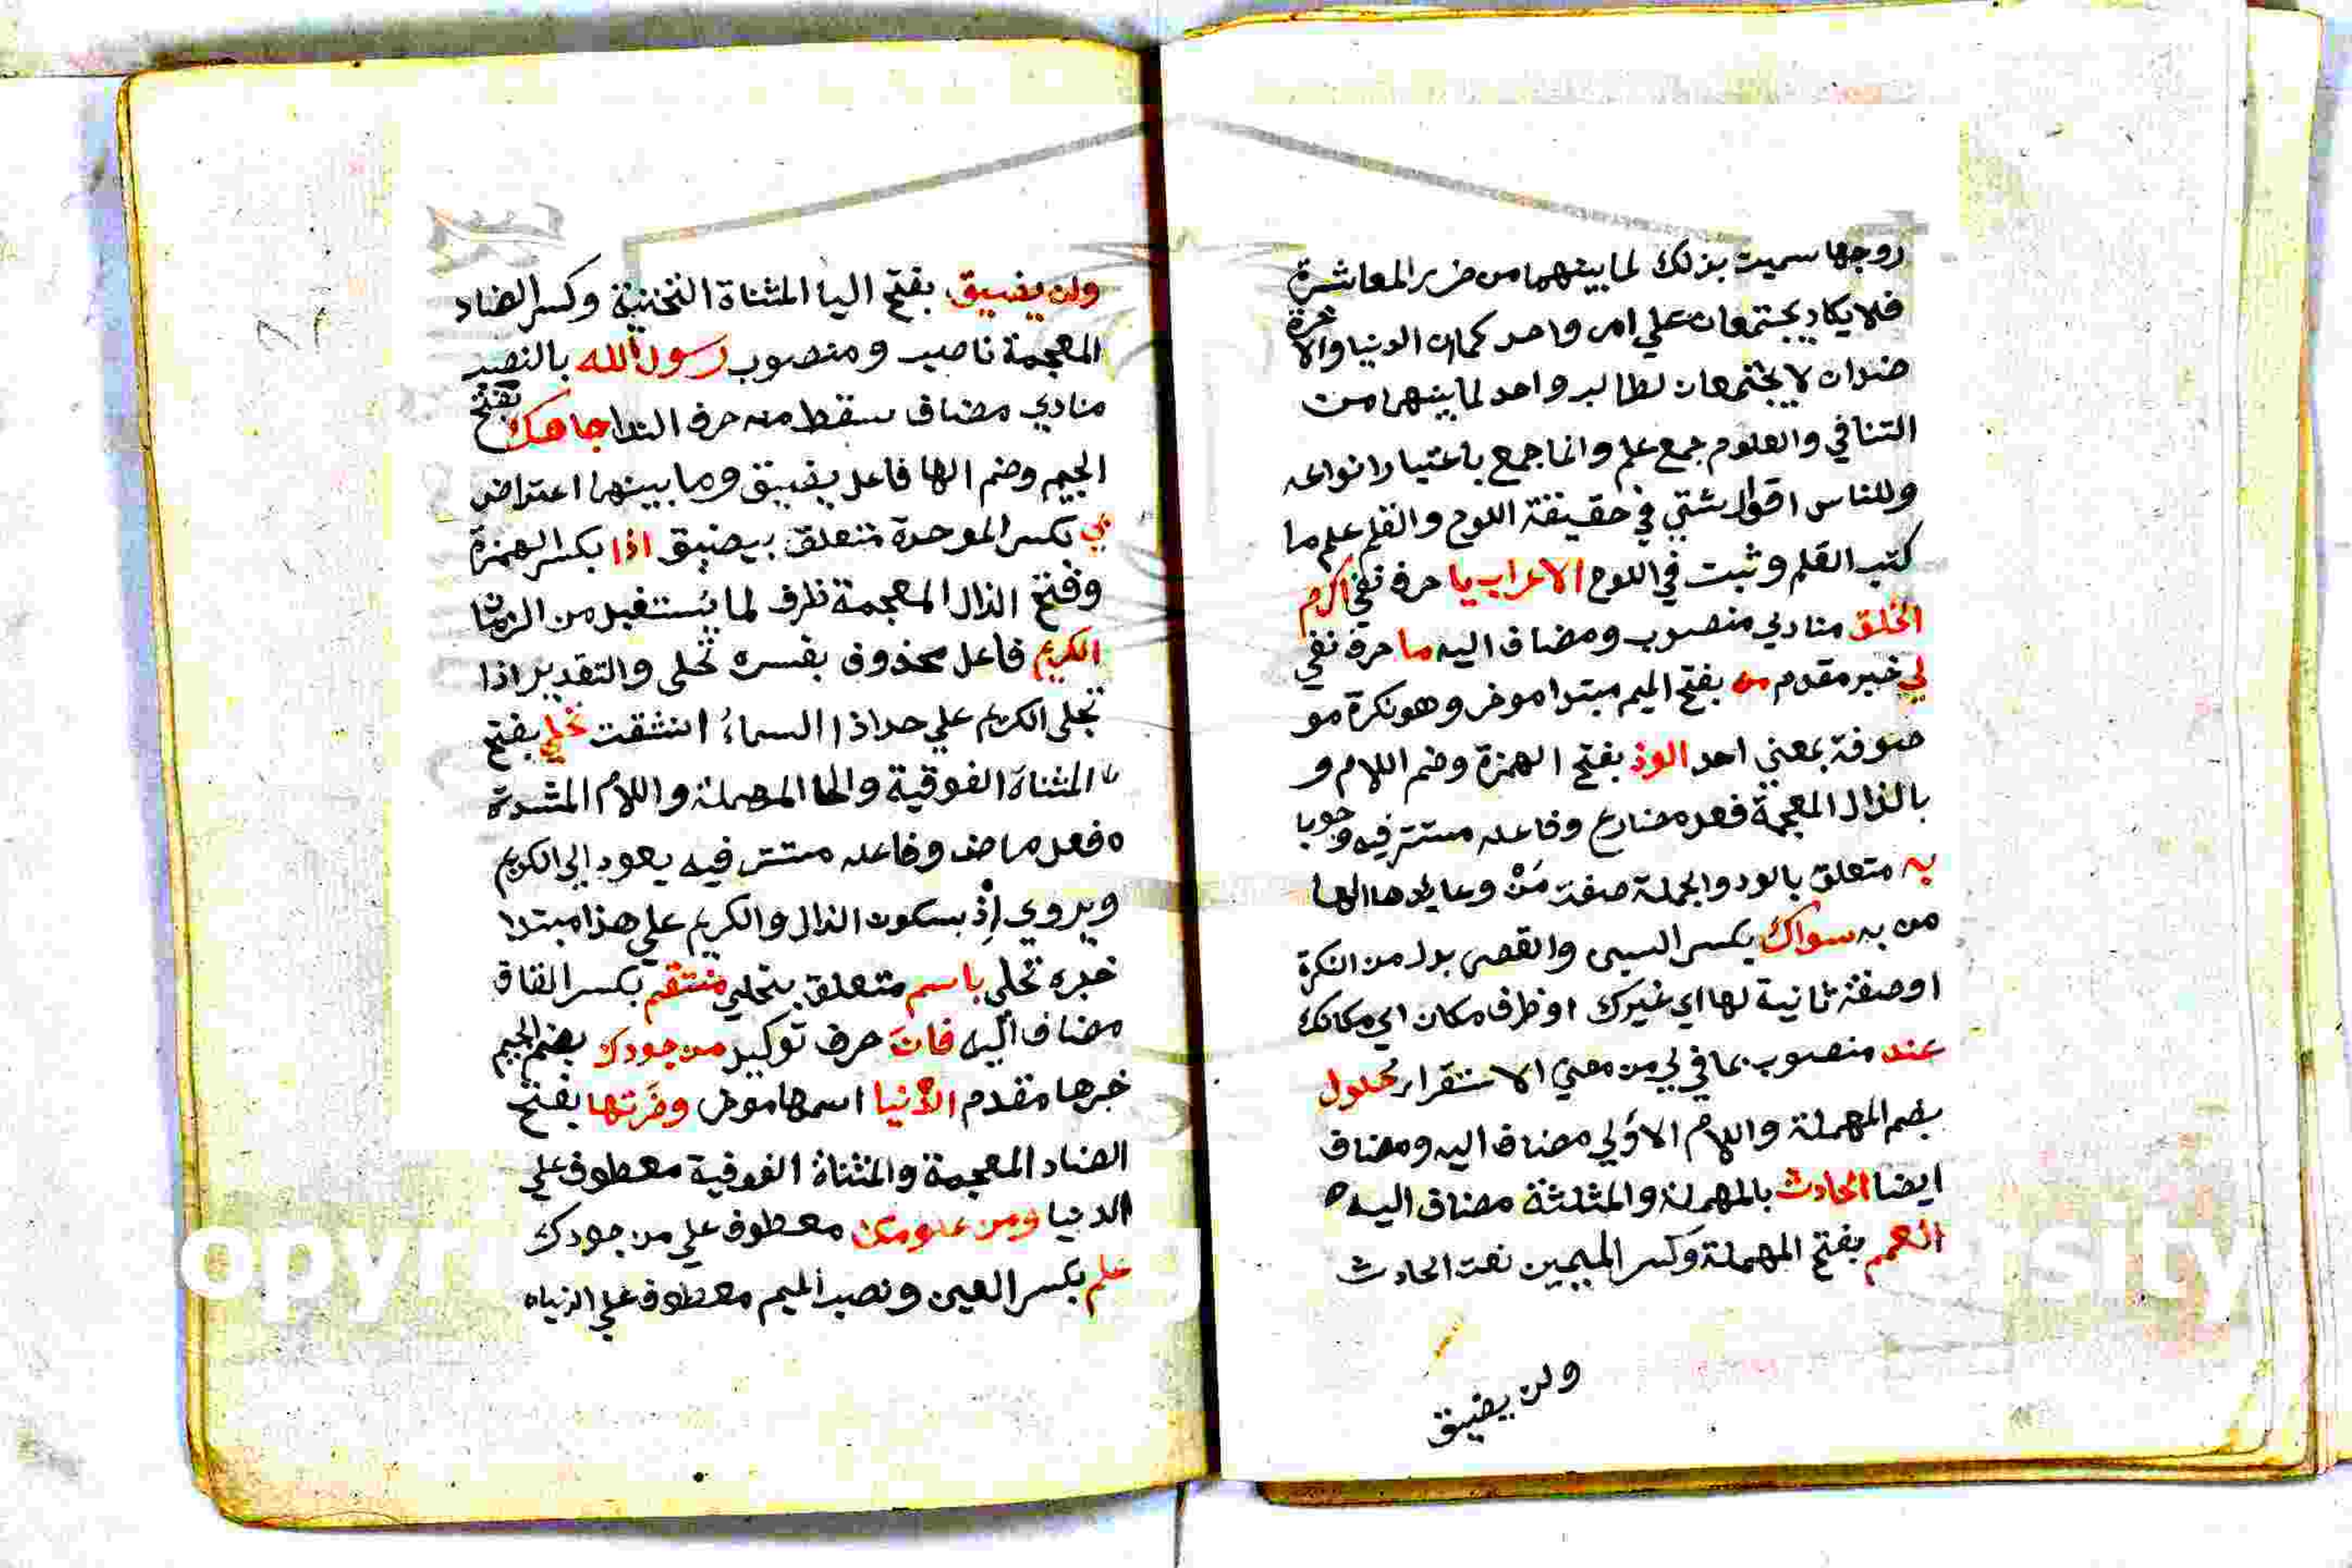 زوجها سميت بذلك لما بينهما من ضرر المعاشرة
فلا يكاد يجتمعان علي امر واحد كما ان الدنيا والاخرة
ضدان لا يجتمعان لطالب واحد لما بينهما من
التنافي والعلوم جمع علم وانما جمع باعتبار انواعه
وللناس اقوال شتي في حقيقة اللوح والقلم علم ما
كتب القلم وثبت في اللوح الاعراب يا حرف نفي اكرم
الخلق منادي منصوب ومضاف اليه ما حرف نفي
لي خبر مقدم من بفتح الميم مبتدا موخر وهو نكرة مو
صوفة بمعني احد الوذ بفتح الهمزة وضم اللام و
بالذال المعجمة فعل مضارع وفاعله مستتر فيه وجوبا
به متعلق بالود والجملة صفة مَنْ وعايدها الها
من به سواك بكسر السين والقصر بدل من النكرة
او صفة ثانية لها اي غيرك او ظرف مكان اي مكانك
عند منصوب بما في لي من معني الاستقرار حلول
بضم المهملة واللام الاولي مضاف اليه ومضاف
ايضا الحادث بالمهملة والمثلثة مضاف اليه
العمم بفتح المهملة وكسر الميمين نعت الحادث
ولن يضيق
ولن يضيق بفتح اليا المثناة التحتية وكسر الضاد
المعجمة ناصب ومنصوب رسول الله بالنصب
منادي مضاف سقط منه حرف الندا جاهك بفتح
الجيم وضم الها فاعل يضيق وما بينهما اعتراض
بي بكسر الموحدة متعلق بيضيق اذا بكسر الهمزة
وفتح الذال المعجمة ظرف لما يستقبل من الزمان
الكريم فاعل محذوف يفسره تحلى والتقدير اذا
تجلى الكريم علي حد اذا السماءُ انشقت تحلي بفتح
المثناة الفوقية والحا المهملة واللام المشددة
فعل ماض وفاعله مستتر فيه يعود الي الكريم
ويروي إذْ بسكون الذال والكريم علي هذا مبتدا
خبره تحلي باسم متعلق بتحلي منتقم بكسر القاف
مضاف اليه فان حرف توكيد من جودك بضم الجيم
خبرها مقدم الدنيا اسمها موخر وضرتها بفتح
الضاد المعجمة والمثناة الفوقية معطوف علي
الدنيا ومن علومك معطوف علي من جودك
علم بكسر العين ونصب الميم معطوف علي الدنيا